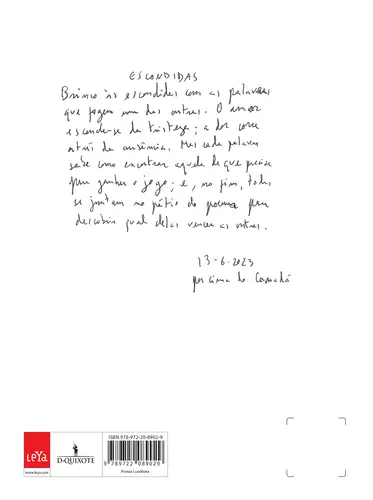 ESCONDIDAS
Brinco às escondidas com as palavras
que fogem umas das outras. O amor
esconde-se da tristeza; a dor corre
atrás da ausência. Mas cada palavra
sabe como encontrar aquela de que precisa
para ganhar o jogo; e, no fim, todas
se juntam no pátio do poema para
descobrir qual delas venceu as outras.
13-6-2023
por cima do
LEYA
www.leya.com
D·QUIXOTE
ISBN 978-972-20-8902-9
9 789722 089029
Poesia Lusófona